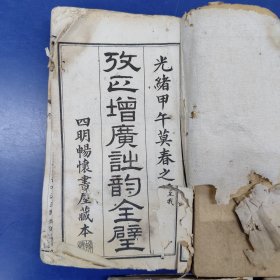 光緒甲午莫春之
攷正增廣詩韵全璧
四明暢懷書屋藏本